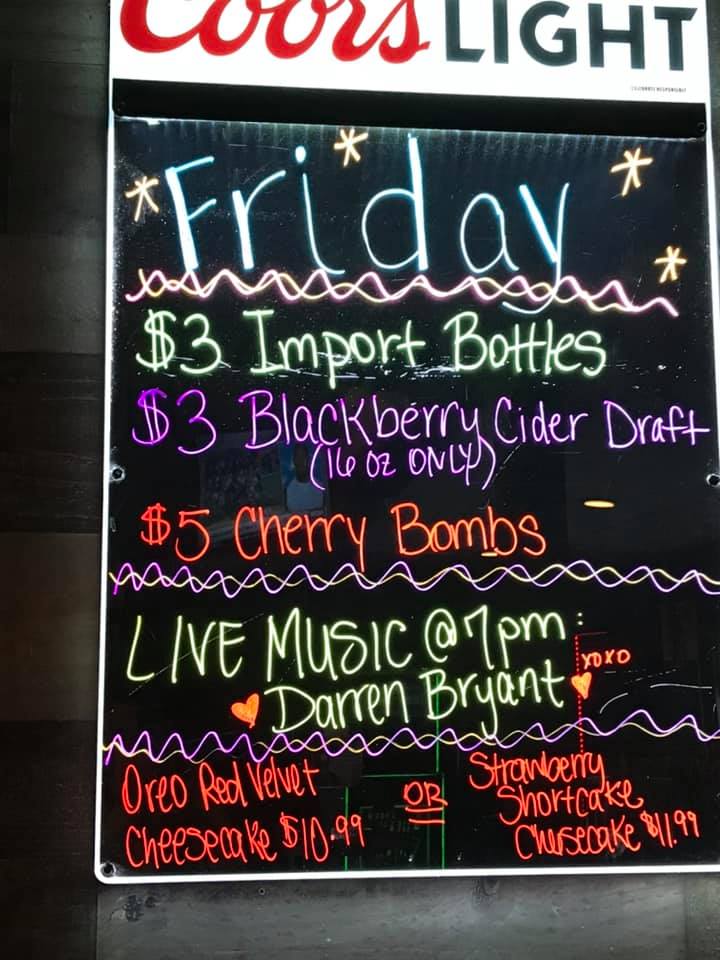 Coors LIGHT
CELEBRATE RESPONSIBLY
Friday
$3 Import Bottles
$3 Blackberry Cider Draft
(16 oz ONLY)
$5 Cherry Bombs
LIVE MUSIC @ 7pm:
XOXO
Darren Bryant
Oreo Red Velvet
Cheesecake $10.99
OR
Strawberry
Shortcake
Cheesecake $11.99